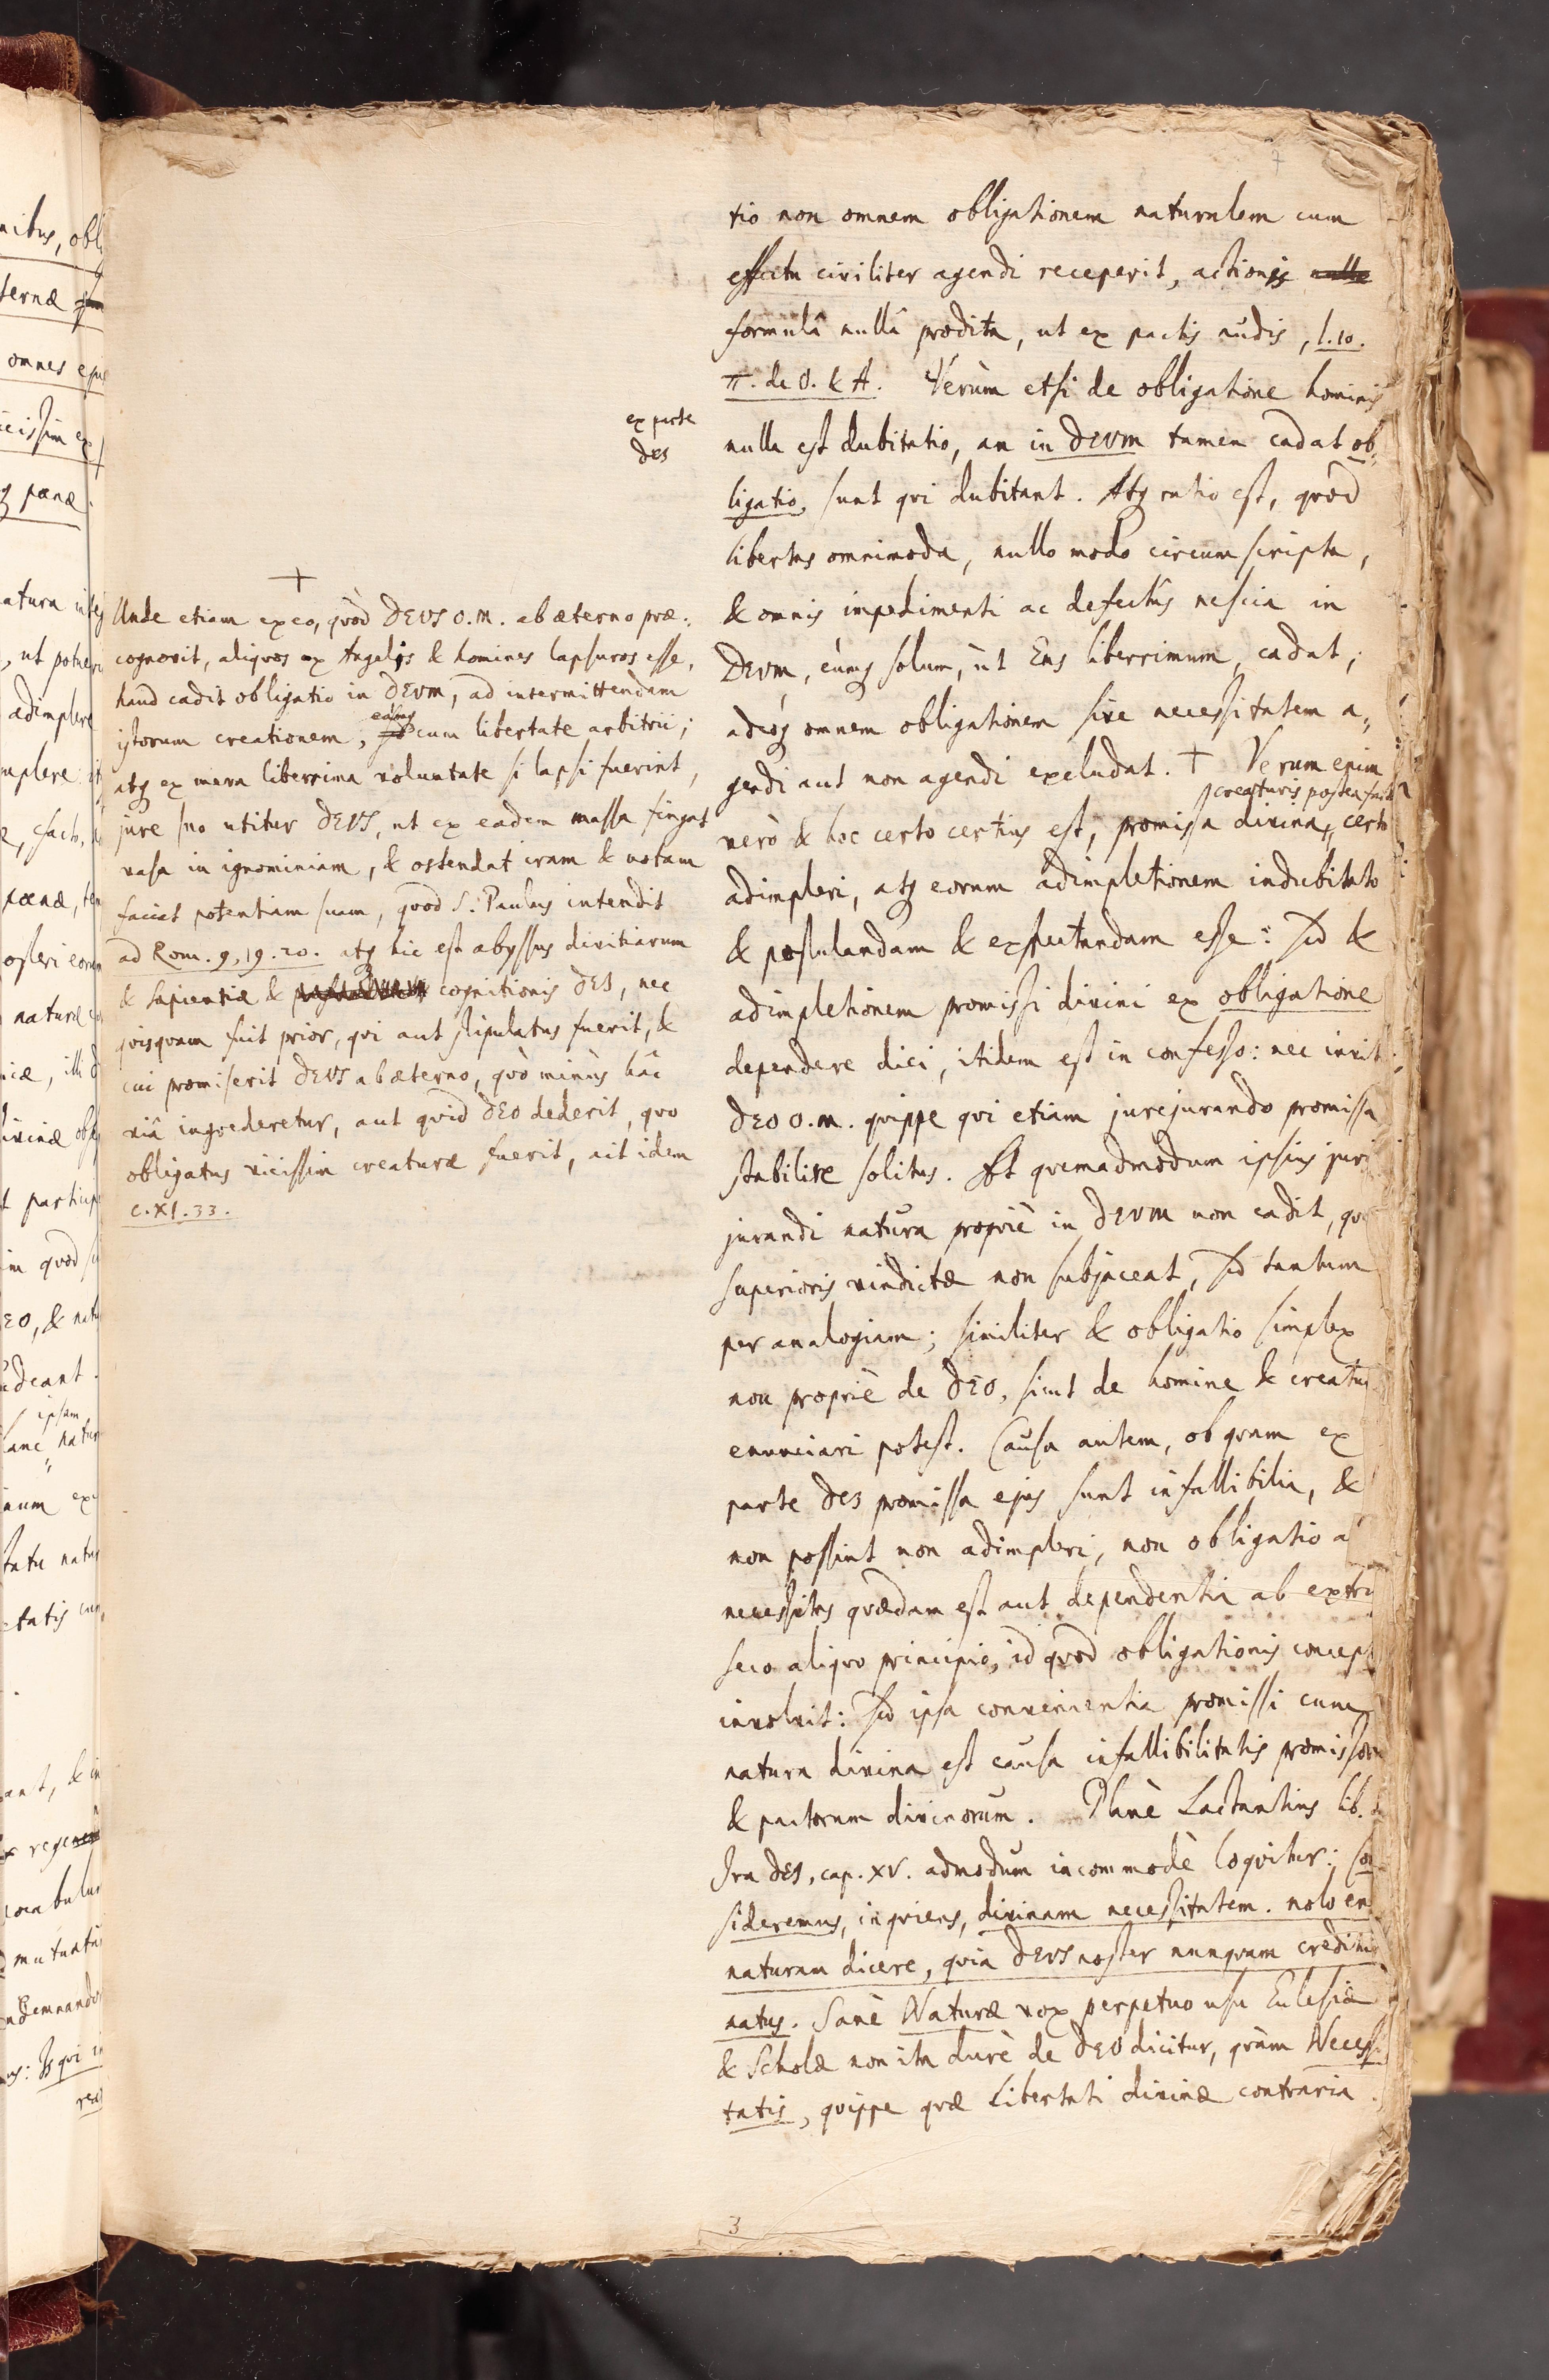 7
tio non omnem obligationem naturalem cum
effectu civiliter agendi receperit, actionis nulla
formulâ nullâ prodita, ut ex pactis nudis, l. 10.
π. de O. & A. Verùm etsi de obligatione hominis
ex parte
DEI
nulla est dubitatio, an in DEUM tamen cadat ob-
ligatio, sunt qvi dubitant. Atq; ratio est, qvod
libertas omnimoda, nullo modo circumscripta,
& omnis impedimenti ac defectûs nescia in
DEUM, eumq; solum, ut Ens liberrimum, cadat;
adeoq; omnem obligationem sive necessitatem a-
gendi aut non agendi excludat. † Verum enim
creaturis postea facta
verò & hoc certo certius est, promissa divina, certo
adimpleri, atq; eorum adimpletionem indubitato
& postulandam & exspectandam esse: sed &
adimpletionem promissi divini ex obligatione
dependere dici, itidem est in confesso: nec invit
DEO O. M. qvippe qvi etiam jurejurando promissa
stabilire solitus. At qvemadmodum ipsius juris
jurandi natura propriè in DEUM non cadit,
superioris vindictæ non subjaceat, sed tantum
per analogiam; similiter & obligatio simplex
non propriè de DEO, sicut de homine & creatu
enunciari potest. Causa autem, ob qvam ex
parte DEI promissa ejus sunt infallibilia, &
non possint non adimpleri, non obligatio a
necessitas qvædam est aut dependentia ab extrin
seco aliqvo principio, id qvod obligationis concept
involvit: sed ipsa convenientia promissi cum
natura divina est causa infallibilitatis promissorum
& pactorum divinorum. Planè Lactantius lib. de
Ira DEI, cap. XV. admodum incommodè loqvitur: Con
sideremus, inqviens, divinam necessitatem. nolo en
naturam dicere, qvia DEUS noster nunqvam creditur
natus. Sanè Naturæ vox perpetuo usu Ecclesiæ
& Scholæ non ita durè de DEO dicitur, qvàm Necessi
tatis, qvippe qvæ Libertati divinæ contraria.
3
†
Unde etiam ex eo, qvòd DEUS O. M. ab æterno præ-
cognovit, aliqvos ex Angelis & homines lapsuros esse,
haud cadit obligatio in DEUM, ad intermittendam
istorum creationem, eamq; cum libertate arbitrii;
atq; ex mera liberrima voluntate si lapsi fuerint,
jure suo utitur DEUS, ut ex eadem massa fingat
vasa in ignominiam, & ostendat iram & notam
faciat potentiam suam, qvod S. Paulus intendit
ad Rom. 9, 19. 20. atq; hic est abyssus divitiarum
& sapientiæ & cognitionis DEI, nec
qvisqvam fuit prior, qvi aut stipulatus fuerit, &
cui promiserit DEUS ab æterno, qvò minùs hâc
viâ ingrederetur, aut qvid DEO dederit, qvo
obligatus vicissim creaturæ fuerit, ait idem
c. XI. 33.